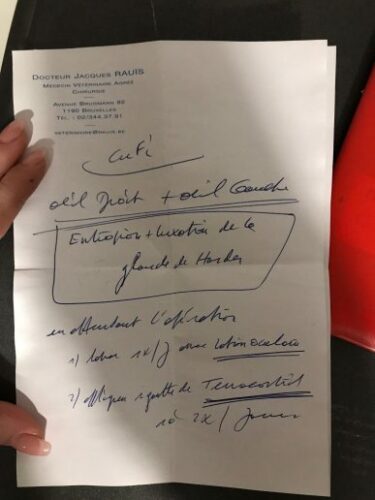 DOCTEUR JACQUES RAUÏS
MÉDECIN VÉTÉRINAIRE AGRÉÉ
CHIRURGIE
AVENUE BRUGMANN 92
1190 BRUXELLES
TÉL. : 02/344.37.91
œil Droit + œil Gauche
Entropion + luxation de la
glande de Harder
en attendant l'opération
1) laver 1x/J avec lotion
2) appliquer 1 goutte de Terracortil
1 à 2x / jour